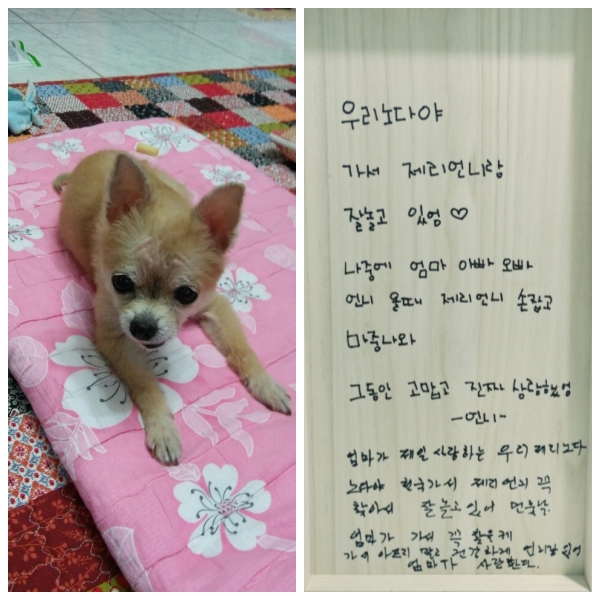 우리노다야
가서 제리언니랑
잘놀고 있엄 ♡
나중에 엄마 아빠 오빠
언니 올때 제리언니 손잡고
마중나와
그동안 고맙고 진짜 사랑했엉
-언니-
엄마가 제일 사랑하는 우리 노다
노다야 천국가서 제리언니 꼭
찾아서 잘놀고 있어
엄마가 가서 꼭 찾을게
가서 아프지 말고 건강하게 있어
엄마가 사랑한다.